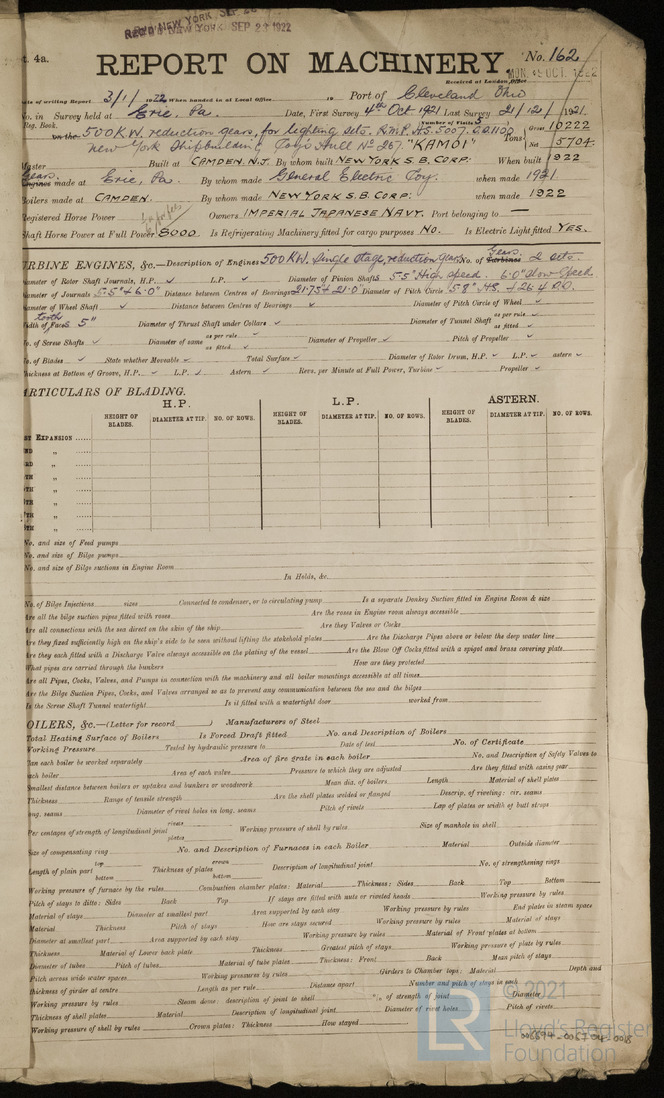 REC'D NEW YORK SEP 23 1922
4a.
REPORT ON MACHINERY
No. 162
MON. 9 OCT. 1922
Received at London Office
Date of writing Report 3/1/1922 When handed in at Local Office 19 Port of Cleveland Ohio
No. in Survey held at Erie, Pa. Date, First Survey 4th Oct 1921 Last Survey 21/12/1921
Reg. Book. Number of Visits 5
on the 500 K.W. reduction gears, for lighting sets. Tons Gross 10222
New York Shipbuilding Coy's Hull No 267. "KAMOI" Net 5704
Master Built at CAMDEN. N.J. By whom built NEW YORK S. B. CORP. When built 1922
Gears
Engines made at Erie, Pa. By whom made General Electric Coy. when made 1921
Boilers made at CAMDEN. By whom made NEW YORK S.B. CORP: when made 1922
Registered Horse Power Owners IMPERIAL JAPANESE NAVY. Port belonging to —
Shaft Horse Power at Full Power 8000 Is Refrigerating Machinery fitted for cargo purposes NO. Is Electric Light fitted YES.
TURBINE ENGINES, &c.—Description of Engines 500 KW. Single Stage, reduction gears No. of Turbines Gears 2 sets.
Diameter of Rotor Shaft Journals, H.P. ✓ L.P. ✓ Diameter of Pinion Shafts 5·5" High speed. 6·0" Slow Speed
Diameter of Journals 5·5" & 6·0" Distance between Centres of Bearings 21·75 & 21·0" Diameter of Pitch Circle
Diameter of Wheel Shaft ✓ Distance between Centres of Bearings ✓ Diameter of Pitch Circle of Wheel ✓
tooth
Width of Face 5" Diameter of Thrust Shaft under Collars ✓ Diameter of Tunnel Shaft as per rule ✓ as fitted ✓
No. of Screw Shafts ✓ Diameter of same as per rule ✓ as fitted ✓ Diameter of Propeller ✓ Pitch of Propeller ✓
No. of Blades ✓ State whether Moveable ✓ Total Surface ✓ Diameter of Rotor Drum, H.P. ✓ L.P. ✓ Astern ✓
Thickness at Bottom of Groove, H.P. ✓ L.P. ✓ Astern ✓ Revs. per Minute at Full Power, Turbine ✓ Propeller ✓
PARTICULARS OF BLADING.
H.P. L.P. ASTERN.
HEIGHT OF BLADES. DIAMETER AT TIP. NO. OF ROWS. HEIGHT OF BLADES. DIAMETER AT TIP. NO. OF ROWS. HEIGHT OF BLADES. DIAMETER AT TIP. NO. OF ROWS.
1ST EXPANSION
2ND "
3RD "
4TH "
5TH "
6TH "
7TH "
8TH "
No. and size of Feed pumps
No. and size of Bilge pumps
No. and size of Bilge suctions in Engine Room
In Holds, &c.
No. of Bilge Injections sizes Connected to condenser, or to circulating pump Is a separate Donkey Suction fitted in Engine Room & size
Are all the bilge suction pipes fitted with roses Are the roses in Engine room always accessible
Are all connections with the sea direct on the skin of the ship Are they Valves or Cocks
Are they fixed sufficiently high on the ship's side to be seen without lifting the stokehold plates Are the Discharge Pipes above or below the deep water line
Are they each fitted with a Discharge Valve always accessible on the plating of the vessel Are the Blow Off Cocks fitted with a spigot and brass covering plate
What pipes are carried through the bunkers How are they protected
Are all Pipes, Cocks, Valves, and Pumps in connection with the machinery and all boiler mountings accessible at all times
Are the Bilge Suction Pipes, Cocks, and Valves arranged so as to prevent any communication between the sea and the bilges
Is the Screw Shaft Tunnel watertight Is it fitted with a watertight door worked from
BOILERS, &c.—(Letter for record ) Manufacturers of Steel
Total Heating Surface of Boilers Is Forced Draft fitted No. and Description of Boilers
Working Pressure Tested by hydraulic pressure to Date of test No. of Certificate
Can each boiler be worked separately Area of fire grate in each boiler No. and Description of Safety Valves to
each boiler Area of each valve Pressure to which they are adjusted Are they fitted with easing gear
Smallest distance between boilers or uptakes and bunkers or woodwork Mean dia. of boilers Length Material of shell plates
Thickness Range of tensile strength Are the shell plates welded or flanged Descrip. of riveting: cir. seams
long. seams Diameter of rivet holes in long. seams Pitch of rivets Lap of plates or width of butt straps
Per centages of strength of longitudinal joint rivets plates Working pressure of shell by rules Size of manhole in shell
Size of compensating ring No. and Description of Furnaces in each Boiler Material Outside diameter
Length of plain part top bottom Thickness of plates crown bottom Description of longitudinal joint No. of strengthening rings
Working pressure of furnace by the rules Combustion chamber plates: Material Thickness: Sides Back Top Bottom
Pitch of stays to ditto: Sides Back Top If stays are fitted with nuts or riveted heads Working pressure by rules
Material of stays Diameter at smallest part Area supported by each stay Working pressure by rules End plates in steam space
Material Thickness Pitch of stays How are stays secured Working pressure by rules Material of stays
Diameter at smallest part Area supported by each stay Working pressure by rules Material of Front plates at bottom
Thickness Material of Lower back plate Thickness Greatest pitch of stays Working pressure of plate by rules
Diameter of tubes Pitch of tubes Material of tube plates Thickness: Front Back Mean pitch of stays
Pitch across wide water spaces Working pressures by rules Girders to Chamber tops: Material Depth and
thickness of girder at centre Length as per rule Distance apart Number and pitch of stays in each
Working pressure by rules Steam dome: description of joint to shell % of strength of joint Diameter
Thickness of shell plates Material Description of longitudinal joint Diameter of rivet holes Pitch of rivets
Working pressure of shell by rules Crown plates: Thickness How stayed
LR © 2021 Lloyd's Register Foundation
006694-006704-0018